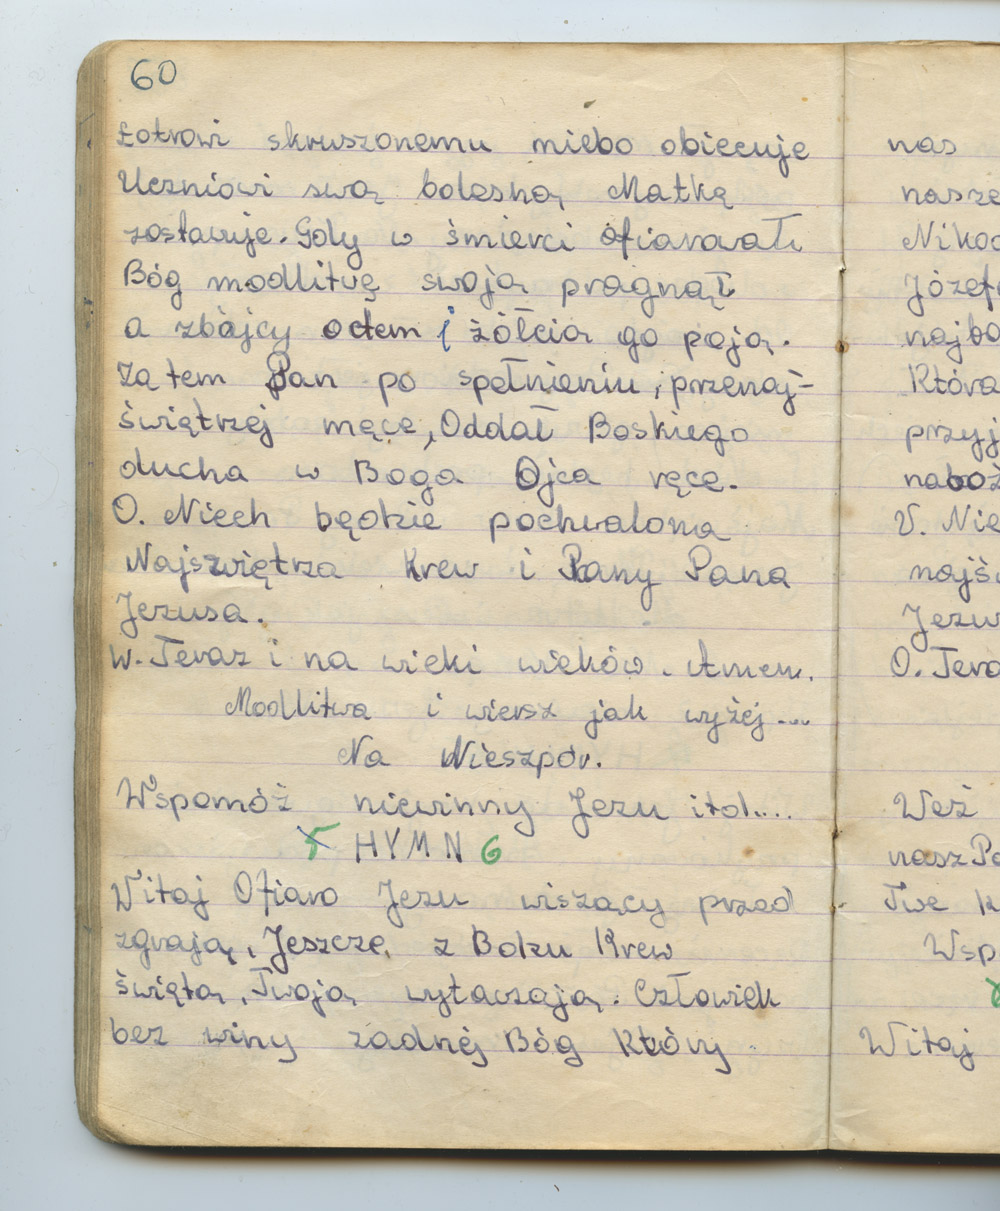 60
Łotrowi skruszonemu niebo obiecuje
Uczniowi swą bolesną Matkę
zostawuje. Gdy w śmierci ofiarował
Bóg modlitwę swoją pragnął
a zbójcy octem i żółcią go poją.
Za tem Pan po spełnieniu, przenaj-
świętrzej męce, Oddał Boskiego
ducha w Boga Ojca ręce.
O. Niech będzie pochwalona
Najświętrza Krew i Rany Pana
Jezusa.
W. Teraz i na wieki wieków. Amen.
Modlitwa i wiersz jak wyżej...
Na Nieszpór.
Wspomóż niewinny Jezu itd....
5 HYMN 6
Witaj Ofiaro Jezu wiszący przed
zgrają, Jeszcze z Boku Krew
świętą, Twoją wytaczają. Człowiek
bez winy żadnéj Bóg Który
nas
nasze
Nikod
Józef
najbo
Która
przyj
naboż
V. Nie
najś
Jezu
O. Tera
Weź
nasz Po
Twe k
Wsp
Witaj